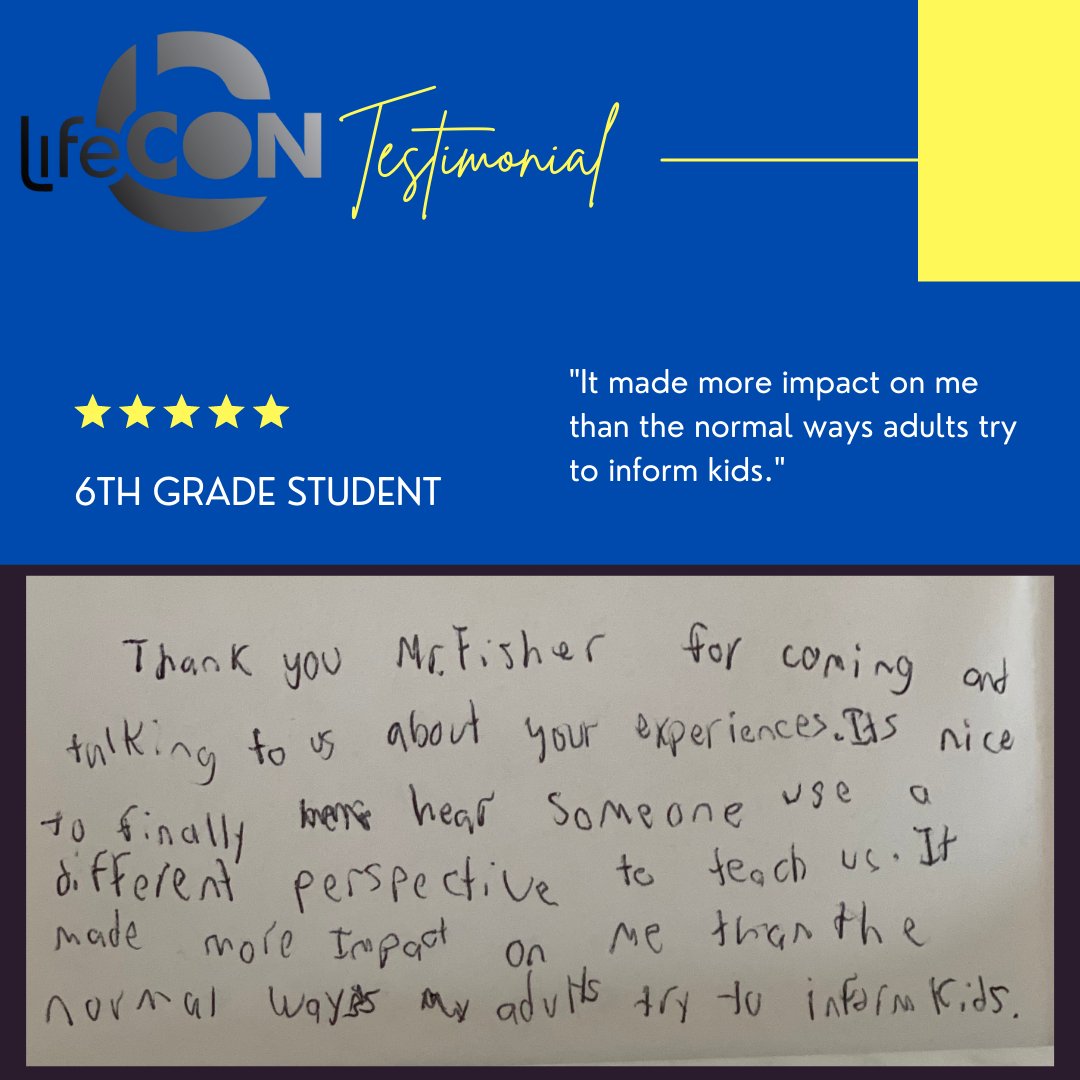 LifeCON
Testimonial
"It made more impact on me
than the normal ways adults try
to inform kids."
6TH GRADE STUDENT
Thank you Mr. Fisher for coming and
talking to us about your experiences. Its nice
to finally hear someone use a
different perspective to teach us. It
made more Impact on me than the
normal ways adults try to inform kids.